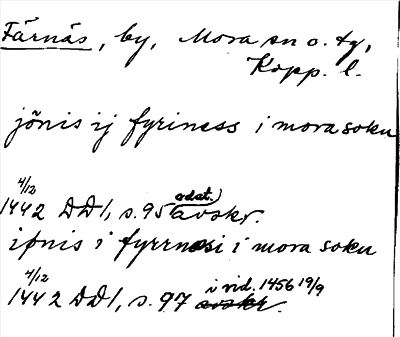 Färnäs, by, Mora sn o. tg,
Kopp. l.
jönis ij fyriness i mora soku
4/12
1442 DD1, s. 95 odat.) avskr.
ipnis i fyrrnesi i mora soku
4/12
1442 DD1, s. 97 i vid. 1456 19/9 avskr.